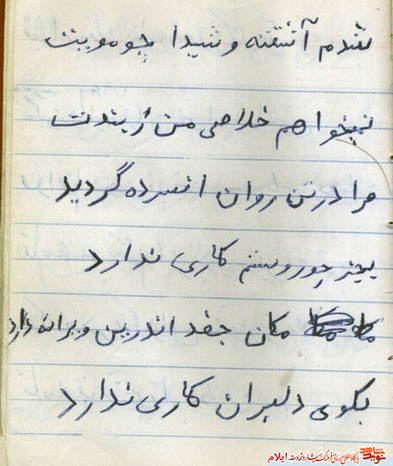 شدم آشفته و شیدا چو مویت
نمیخواهم خلاصی من ز بندت
مرا در تن روان افسرده گردید
بجز جور و ستم کاری ندارد
مکان جغد اندرین ویرانه دارد
بکوی دلبران کاری ندارد